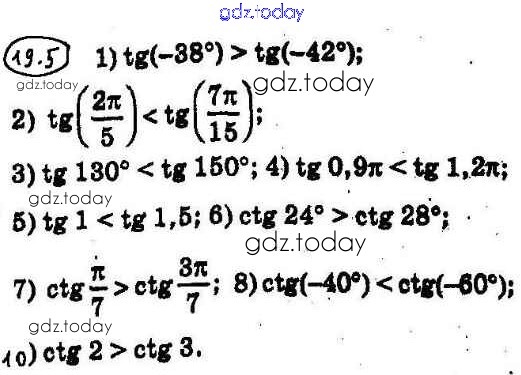 gdz.today
19.5 1) tg(−38°) > tg(−42°);
gdz.today
2) tg(2π/5) < tg(7π/15);
3) tg 130° < tg 150°; 4) tg 0,9π < tg 1,2π;
gdz.today
5) tg 1 < tg 1,5; 6) ctg 24° > ctg 28°;
gdz.today
7) ctg π/7 > ctg 3π/7; 8) ctg(−40°) < ctg(−60°);
gdz.today
gdz.today
10) ctg 2 > ctg 3.